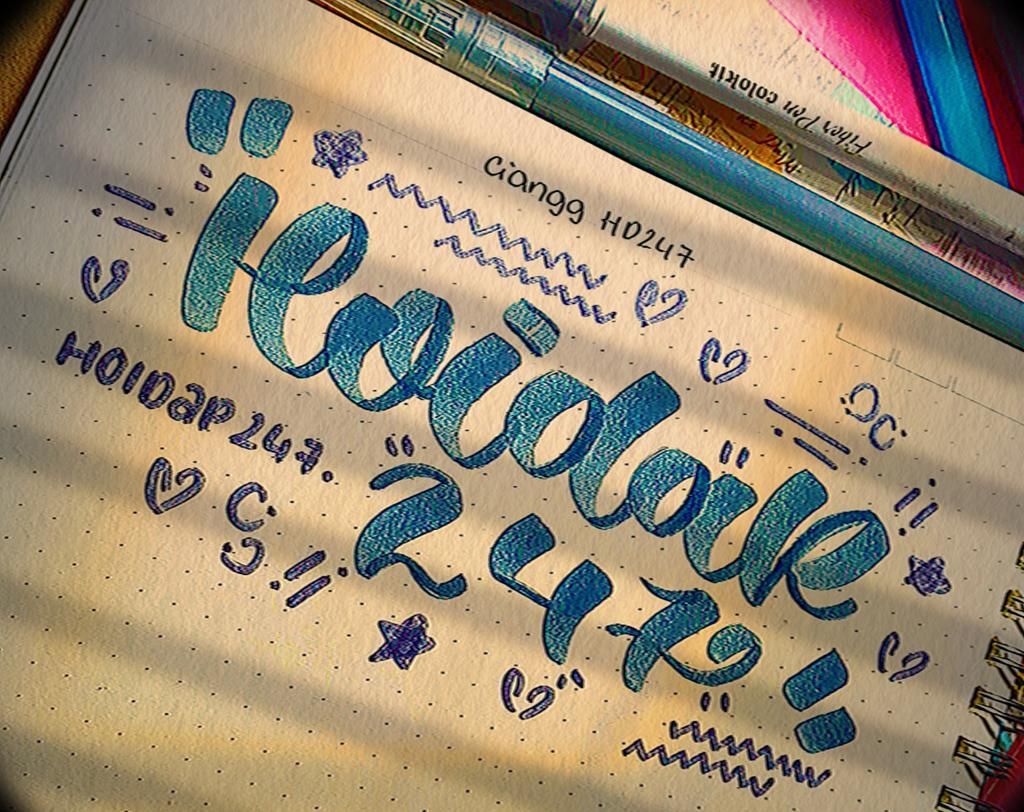 Fiber Pen colokit
Giangg HD247
"Hoidap
247"
HOIDaP 247.